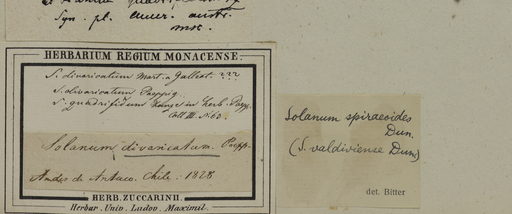 Syn. pl. amer. austr.
msc.
HERBARIUM REGIUM MONACENSE.
S. divaricatum Mart. & Galleot. ???
S. divaricatum Poeppig.
S. quadrifidum Kunze in herb. Poepp.
Coll III. N. 60.
Solanum divaricatum. Poepp.
Andes de Antuco. Chile. 1828
HERB. ZUCCARINII.
Herbar. Univ. Ludov. Maximil.
Solanum spiraeoides
Dun.
(S. valdiviense Dun)
det. Bitter